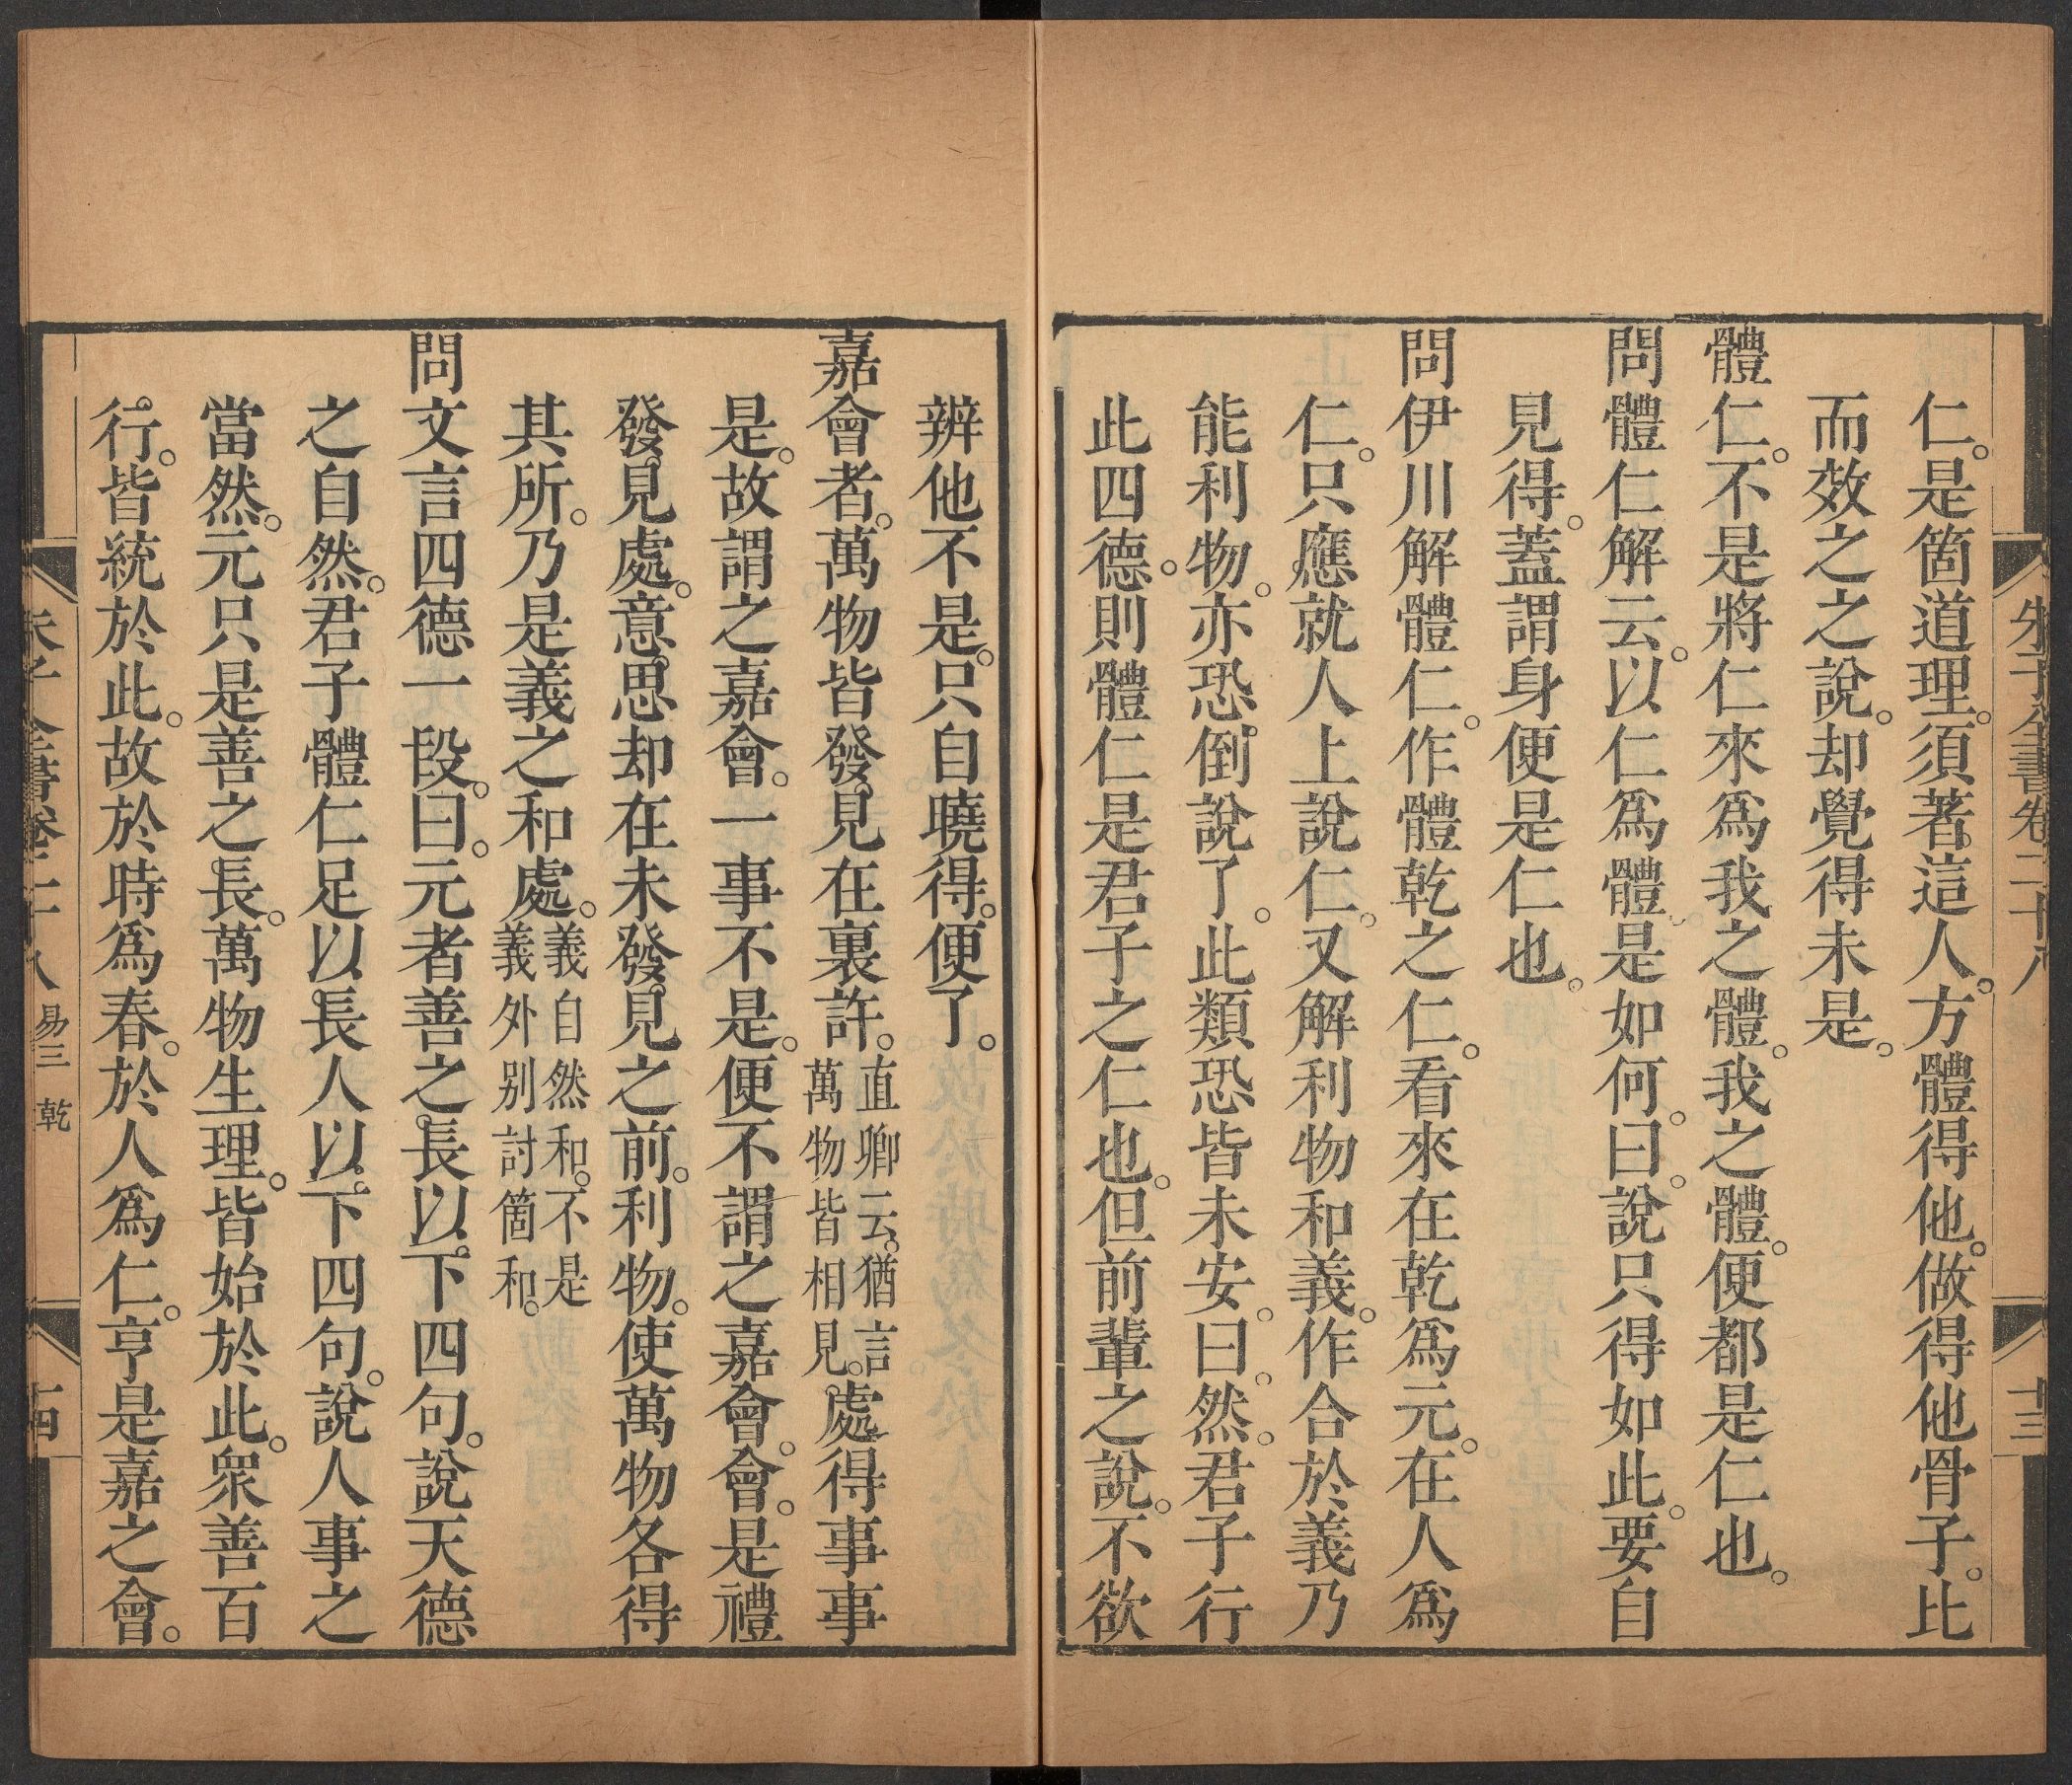 朱子全書卷二十八
十三
仁。是箇道理。須著這人。方體得他。做得他骨子。比
而效之之說。却覺得未是。
體仁。不是將仁來爲我之體。我之體。便都是仁也。
問體仁解云。以仁爲體。是如何。曰。說只得如此。要自
見得。蓋謂身便是仁也。
問伊川解體仁。作體乾之仁。看來在乾爲元。在人爲
仁。只應就人上說仁。又解利物和義。作合於義乃
能利物。亦恐倒說了。此類恐皆未安。曰。然。君子行
此四德。則體仁是君子之仁也。但前輩之說。不欲
辨他不是。只自曉得。便了。
嘉會者。萬物皆發見在裏許。直卿云。猶言萬物皆相見。處得事事
是。故謂之嘉會。一事不是。便不謂之嘉會。會。是禮
發見處。意思却在未發見之前。利物。使萬物各得
其所。乃是義之和處。義自然和。不是義外别討箇和。
問文言四德一段。曰。元者善之長以下四句。說天德
之自然。君子體仁足以長人以下四句。說人事之
當然。元只是善之長。萬物生理。皆始於此。衆善百
行。皆統於此。故於時爲春。於人爲仁。亨是嘉之會。
朱子全書卷二十八 易三 乾
十四